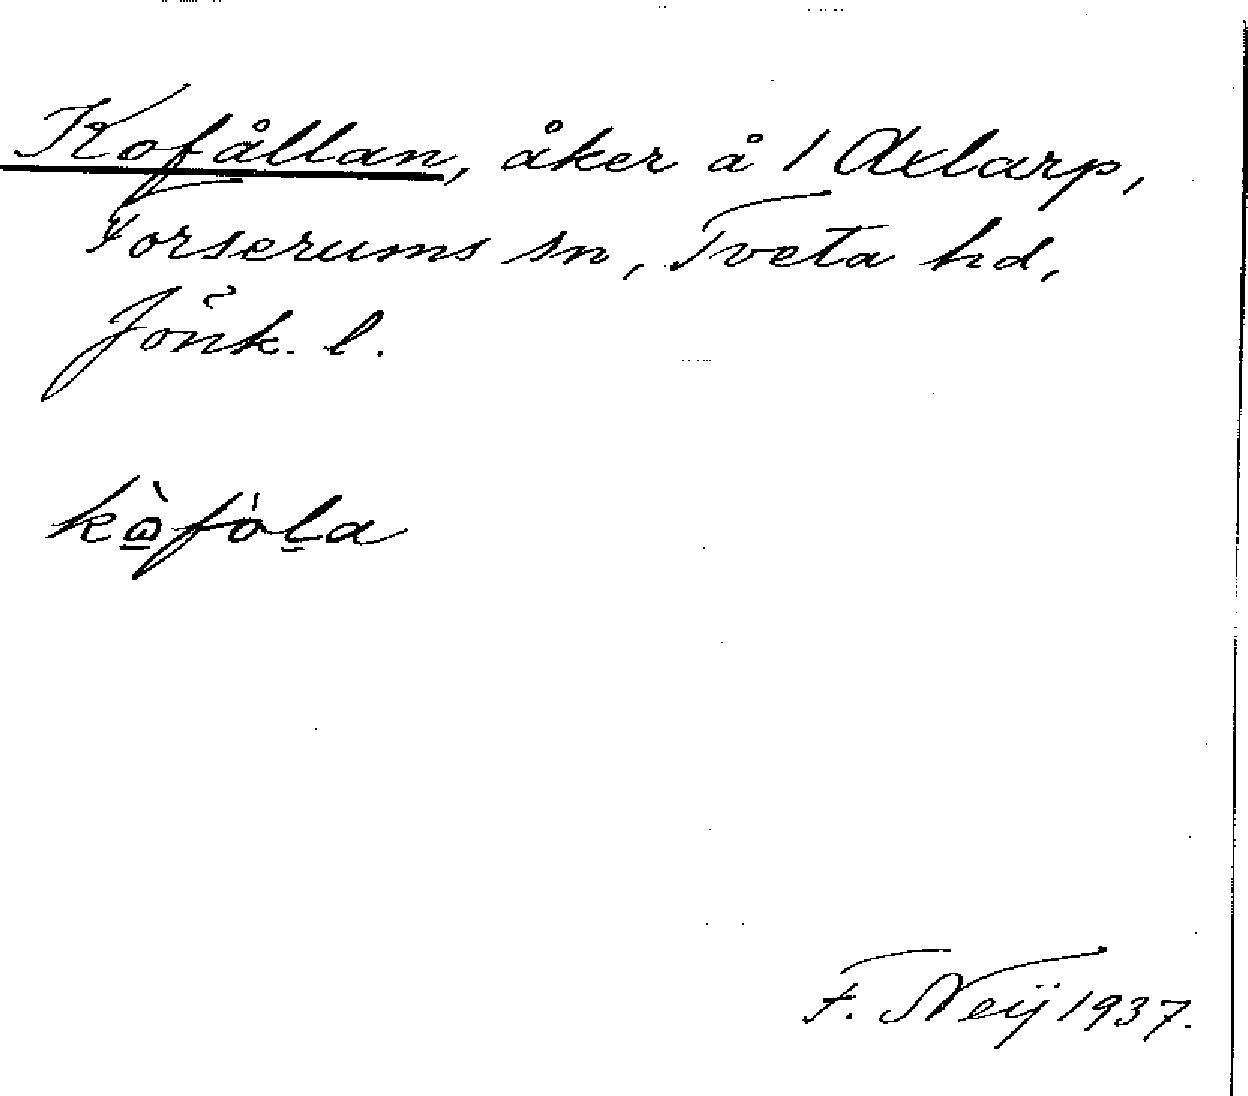 Kofållan, åker å 1 Axlarp,
Forserums sn, Tveta hd,
Jönk. l.
kòfóla
F. Neij 1937.